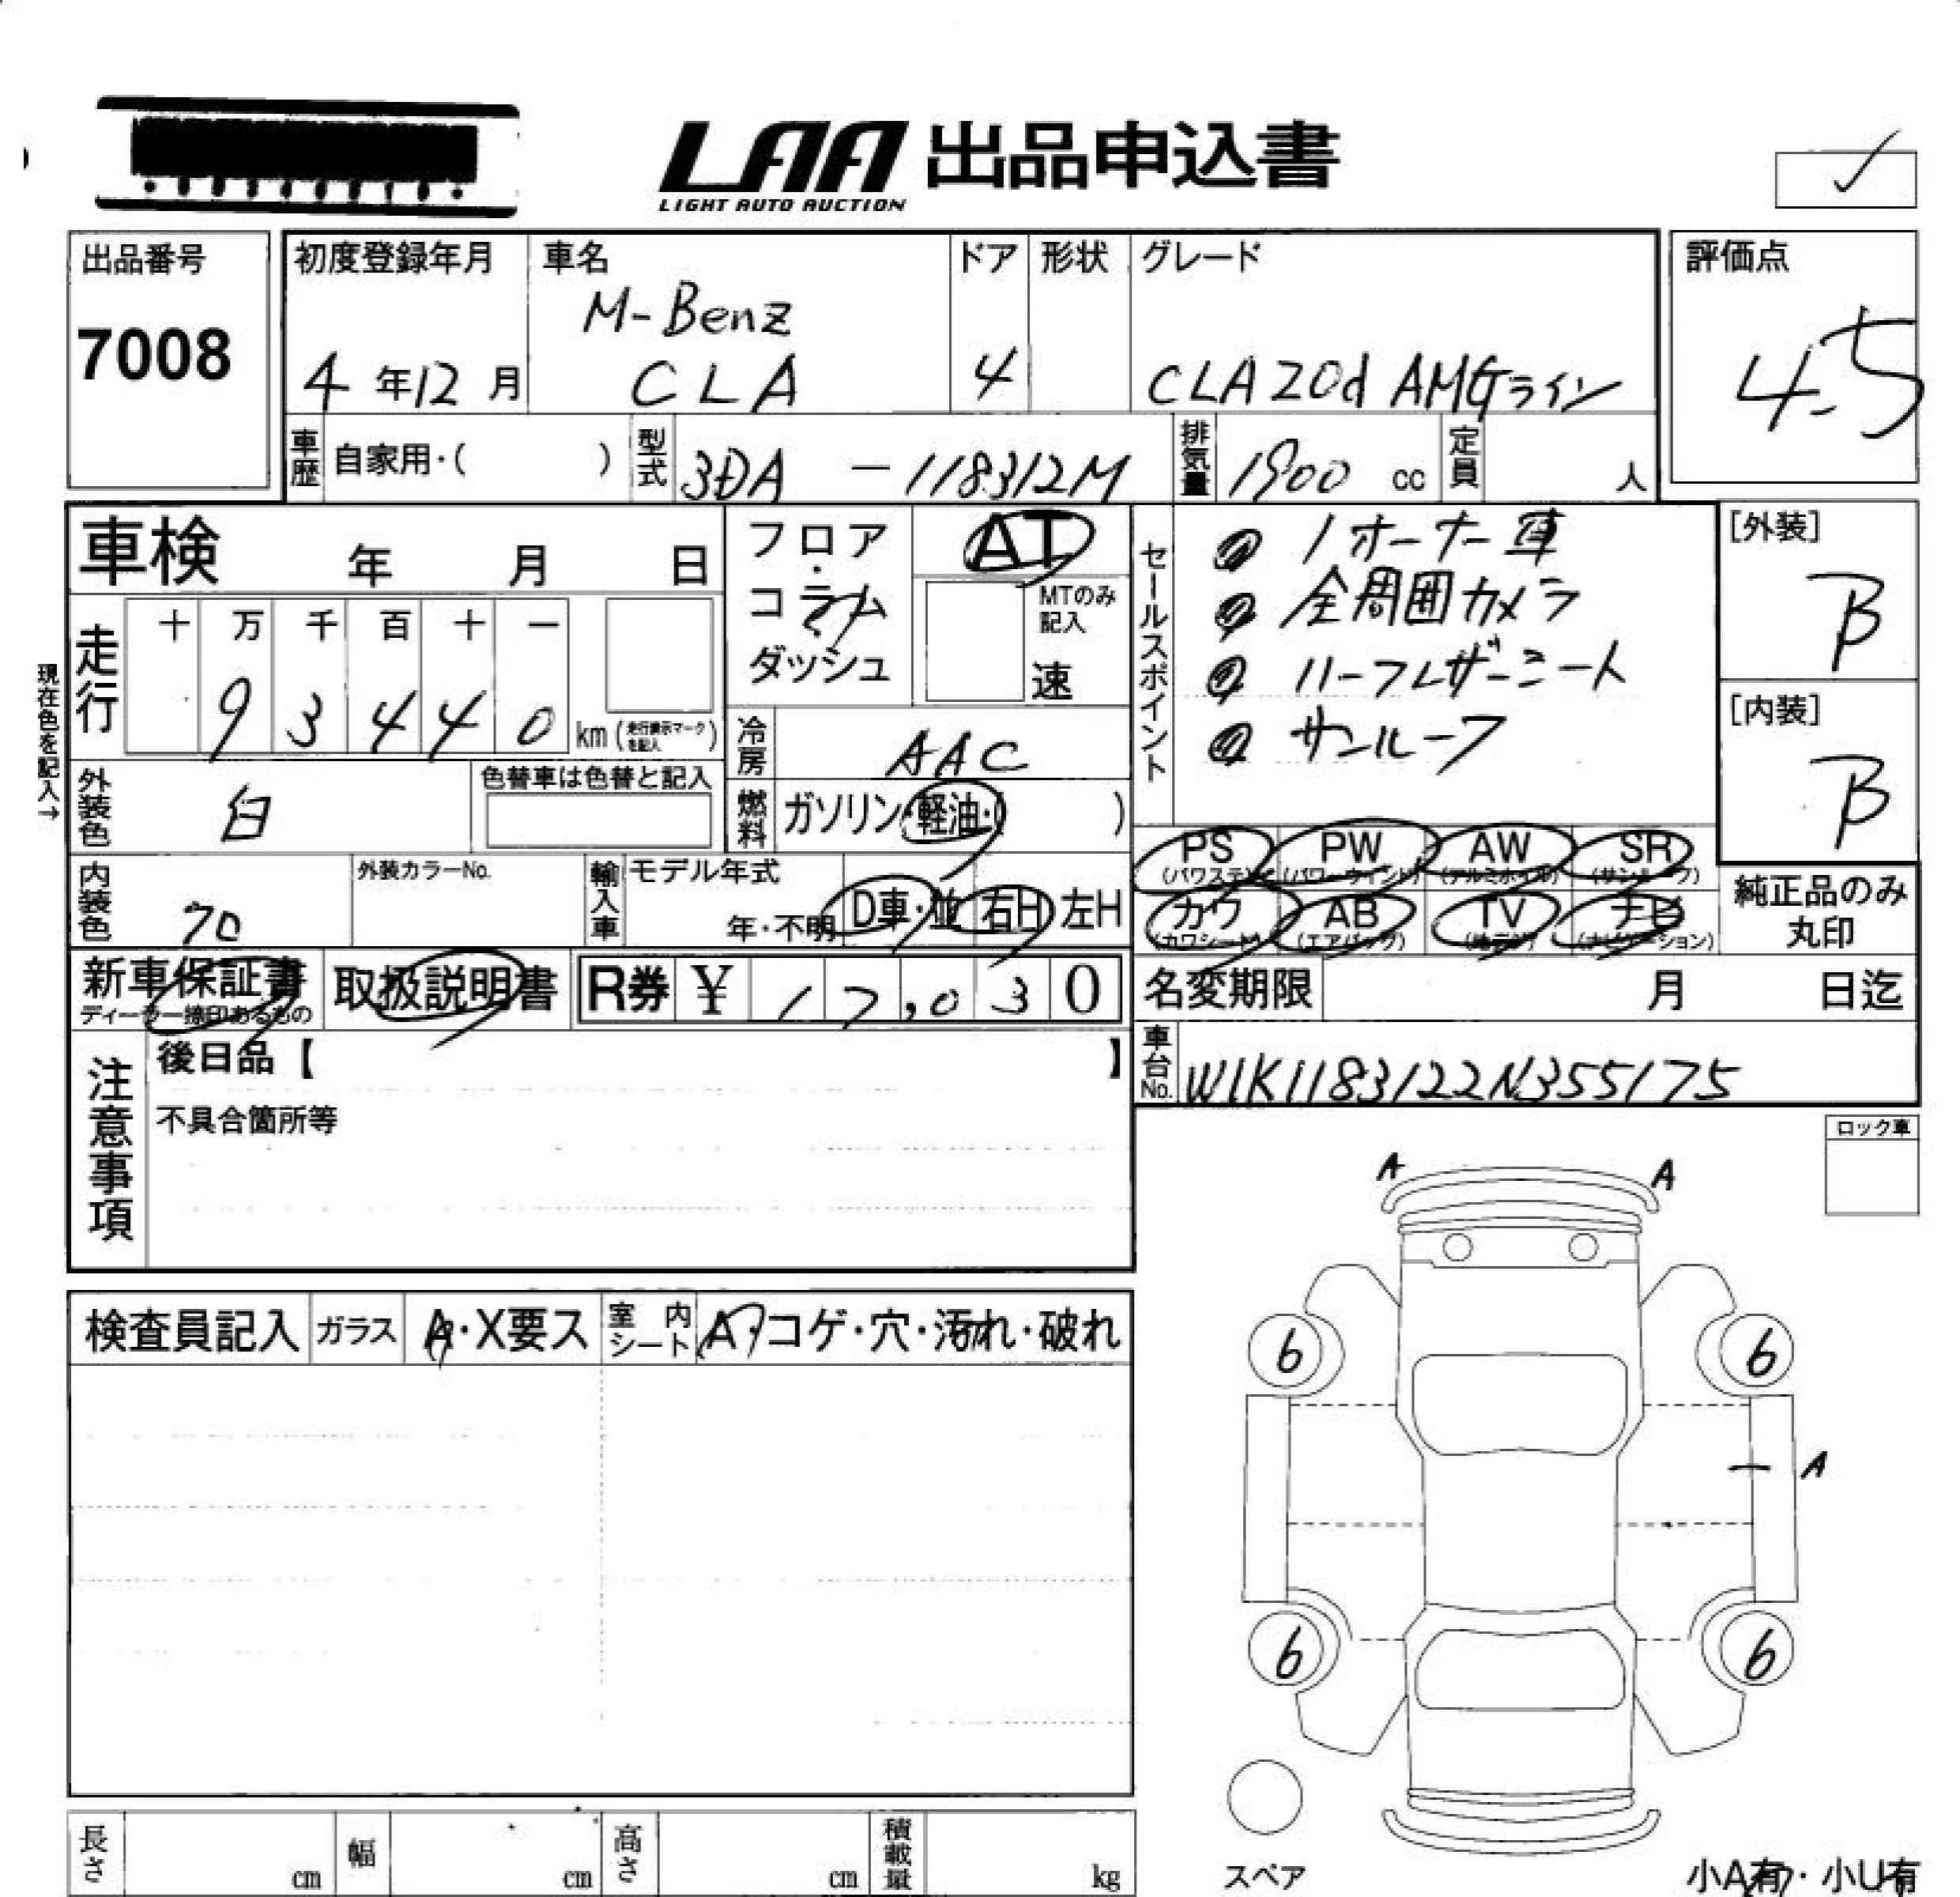 LAA 出品申込書
LIGHT AUTO AUCTION
出品番号
7008
初度登録年月
4 年 12 月
車名
M-Benz
CLA
ドア
4
形状
グレード
CLA 20d AMGライン
評価点
4.5
車歴 自家用・( )
型式 3DA -118312M
排気量 1900 cc
定員 人
車検 年 月 日
フロア・コラム・ダッシュ
AT
MTのみ記入
速
セールスポイント
1オーナー車
全周囲カメラ
ハーフレザーシート
サンルーフ
[外装]
B
[内装]
B
現在色を記入→
走行
十 万 千 百 十 一
9 3 4 4 0 km (走行表示マークを記入)
冷房 AAC
外装色 白
色替車は色替と記入
燃料 ガソリン・軽油・( )
内装色
外装カラーNo.
輸入車
モデル年式
年・不明
D車・並 右H 左H
PS (パワステ)
PW (パワーウィンド)
AW (アルミホイル)
SR (サンルーフ)
カワ (カワシート)
AB (エアバッグ)
TV
ナビ (ナビゲーション)
純正品のみ
丸印
新車保証書
取扱説明書
R券 ¥ 17,030
名変期限 月 日迄
車台No. W1K1183122N355175
注意事項
後日品【 】
不具合箇所等
ロック車
A
A
検査員記入
ガラス A・X要ス
室内シート A・コゲ・穴・汚れ・破れ
6
6
A
6
6
スペア
小A有・小U有
長さ cm
幅 cm
高さ cm
積載量 kg